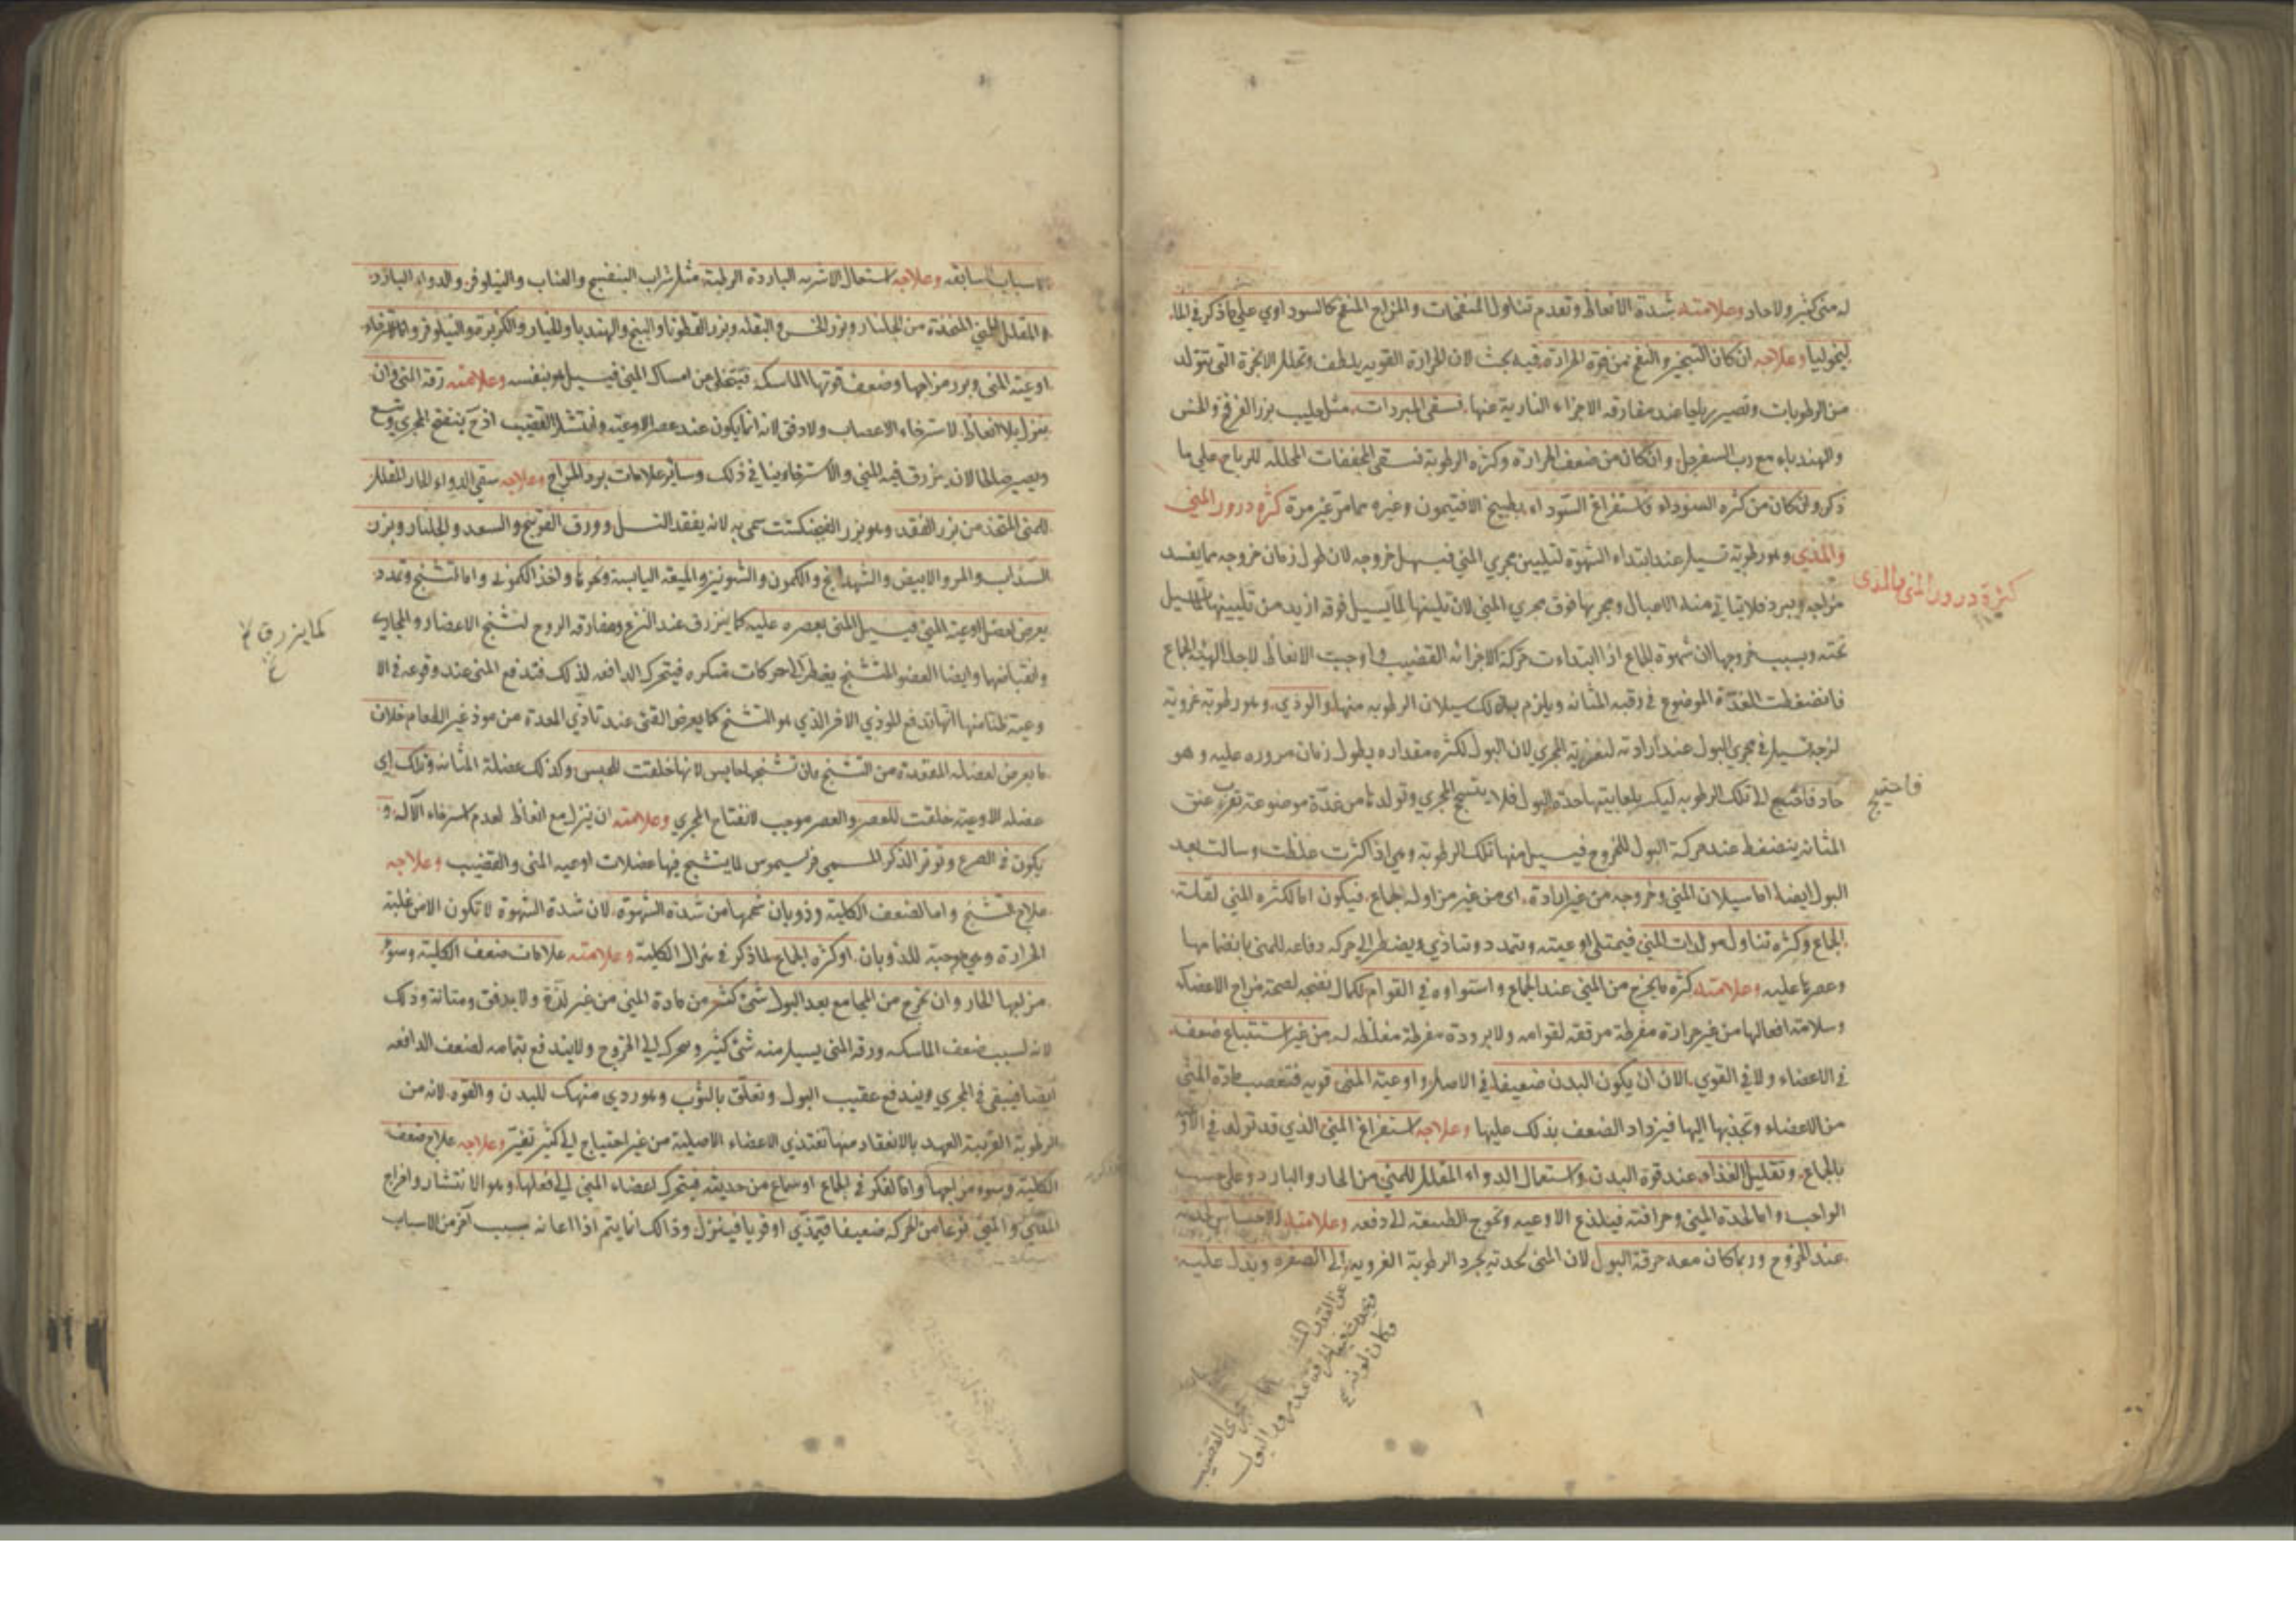 له مني كثير ولا حاد وعلامته شدة الانعاظ وتقدم تناول المنفخات والمزاج المنفخ كالسوداوي علي ما ذكر في الما
ليخوليا وعلاجه ان كان التبخير والنفخ من قوة الحرارة فيه بحث لان الحرارة القوية يلطف وتحلل الابخرة التي يتولد
من الرطوبات وتصير رياحا عند مفارقه الاجزاء النارية عنها فسقي المبردات مثل حليب بزر الفرفخ والخس
والهندباء مع رب السفرجل وان كان من ضعف الحرارة وكثرة الرطوبة فسقي المجففات المحللة للرياح علي ما
ذكر وان كان من كثرة السوداء فاستفراغ السوداء بطبيخ الافتيمون وغيره مما مر غير مرة كثرة درور المني
والمذي وهو رطوبة تسيل عند ابتداء الشهوة لتليين مجري المني فيسهل خروجه لان طول زمان خروجه مما يفسد
مزاجه ويبرد فلا يتاتي منه الاحبال ومجريها فوق مجري المني لان تليينها لما يسيل فوقه ازيد من تليينها لما يسيل
تحته وسبب خروجها ان شهوة الجماع اذا ابتداءت حركة الاجزائه القضيب واوجبت الانعاظ لاجل الهيئة الجماع
فانضغطت الغدة الموضوع في رقبه المثانه ويلزم بذلك سيلان الرطوبه منها والوذي وهو رطوبة غروية
لزجه تسيل في مجري البول عند ارادته لتغرية المجري لان البول لكثرة مقداره يطول زمان مروره عليه وهو
حاد فاحتيج الى تلك الرطوبه ليكسر بلعابيتها حدة البول فلا ينسحج المجري وتولدها من غدة موضوعة بقرب عنق
المثانه ينضغط عند حركة البول للخروج فيسيل منها تلك الرطوبة وهي اذا كثرت غلظت وسالت بعد
البول ايضا اما سيلان المني وخروجه من غير ارادة اي من غير مزاولة الجماع فيكون اما لكثرة المني لقلة
الجماع وكثرة تناول مولدات المني فيمتلي اوعيته ويتمدد ويتاذي ويضطر الي حركه دفاعه للمني بانضمامها
وعصرها عليه وعلامته كثرة ما يخرج من المني عند الجماع واستواوه في القوام لكمال نضجه لصحة مزاج الاعضاء
وسلامة افعالها من غير حرارة مفرطة مرققة لقوامه ولا برودة مفرطة مغلظه له من غير استتباع ضعف
في الاعضاء ولا في القوي الا ان يكون البدن ضعيفا في الاصل واوعية المني قوية فتغصب مادة المني
من الاعضاء وتجذبها اليها فيزداد الضعف بذلك عليها وعلاجه استفراغ المني الذي قد تولد في الاو
بالجماع وتقليل الغذاء عند قوة البدن واستعمال الدواء المقلل للمني من الحار والبارد وعلي حسب
الواجب واما لحدة المني وحرافته فيلذع الاوعيه وتحوج الطبيعة الي دفعه وعلامته الاحساس بلذعه
عند الخروج وربما كان معه حرقة البول لان المني لحدته يجرد الرطوبة الغروية الي الصفره ويدل عليه
كثرة درور المني والمذي
فاحتيج
عن الغدد
مجري القضيب
ويحدث فيها الحرقة عند مرور البول
وكان لونه ع
الاسباب السابقه وعلاجه استعمال الاشربه الباردة الرطبة مثل شراب البنفسج والعناب والنيلوفر والدواء البارد
المقلل للمني المتخذة من الجلنار وبزر الخس والبقلة وبزر القطونا والبنج والهندبا والخيار والكزبرة والنيلوفر واما لاسترخاء
اوعية المني وبرد مزاجها وضعف قوتها الماسكه فيتخلي عن امساك المني فيسيل هو بنفسه وعلامته رقة المني وان
ينزل بلا انعاظ لاسترخاء الاعصاب ولا دفق لانه انما يكون عند عصر الاوعيه وانتشار القضيب اذ ح ينفتح المجري ويتسع
ويصير صالحا لان ينزرق فيه المني والاسترخا ينافي ذلك وساير علامات برد المزاج وعلاجه سقي الدواء الحار المقلل
للمني المتخذ من بزر الفقد وهو بزر الفنجنكشت سمي به لانه يفقد النسل وورق الفوتنج والسعد والجلنار وبزر
السذاب والمر والابيض والشهدانج والكمون والشونيز والميعة اليابسة ونحوها واخذ الكموني واما لتشنج وتمدد
يعرض لعضل اوعية المني فيسيل المني بعصره عليه كما ينزرق عند النزع ومفارقة الروح لتشنج الاعضاء والمجاري
وانقباضها وايضا العضو المتشنج يضطر الي حركات منكره فيتحرك الدافعه لذلك فتدفع المني عند وقوعه في الا
وعيه ظنا منها انها تدفع الموذي الاخر الذي هو التشنج كما يعرض القي عند تاذي المعدة من موذ غير الطعام خلاف
ما يعرض لعضله المقعدة من التشنج فان تشنجها حابس لانها خلقت للحبس وكذلك عضلة المثانه وتلك اي
عضله الاوعيه خلقت للعصر والعصر موجب لانفتاح المجري وعلامته ان ينزل مع انعاظ لعدم استرخاء الآلة و
يكون في الصرع وتوتر الذكر المسمي فريسيموس لما يتشنج فيها عضلات اوعيه المني والقضيب وعلاجه
علاج التشنج واما لضعف الكلية وذوبان شحمها من شدة الشهوة لان شدة الشهوة لا تكون الا من غلبة
الحرارة وهي موجبة للذوبان او كثرة الجماع لما ذكر في هزال الكلية وعلامته علامات ضعف الكلية وسوء
مزاجها الحار وان يخرج من المجامع بعد البول شيء كثير من مادة المني من غير لذة ولا يدفق ومتانة وذلك
لانه لسبب ضعف الماسكه ورقة المني يسيل منه شيء كثير ويتحرك الي الخروج ولا يندفع بتمامه لضعف الدافعه
ايضا فيبقي في المجري ويندفع عقيب البول وتعلق بالثوب وهو ردي منهك للبدن والقوة لانه من
الرطوبة القريبة العهد بالانعقاد منها تغتذي الاعضاء الاصلية من غير احتياج الي كثير تغير وعلاجه علاج ضعف
الكلية وسوء مزاجها واما لفكر في الجماع او سماع من حديثه فيتحرك اعضاء المني الي فعلها وهو الانتشار واخراج
المذي والمني نوعا من الحركه ضعيفا فيمذي او قويا فينزل وذالك انما يتم اذا اعانه سبب آخر من الاسباب
كما ينزرق